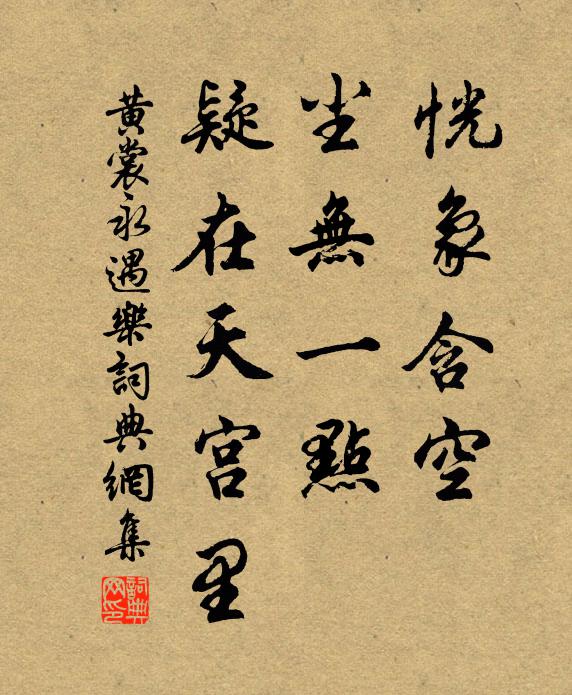 恍象含空
尘無一點
疑在天宮里
黄裳永遇樂詞典網集
詞典网印